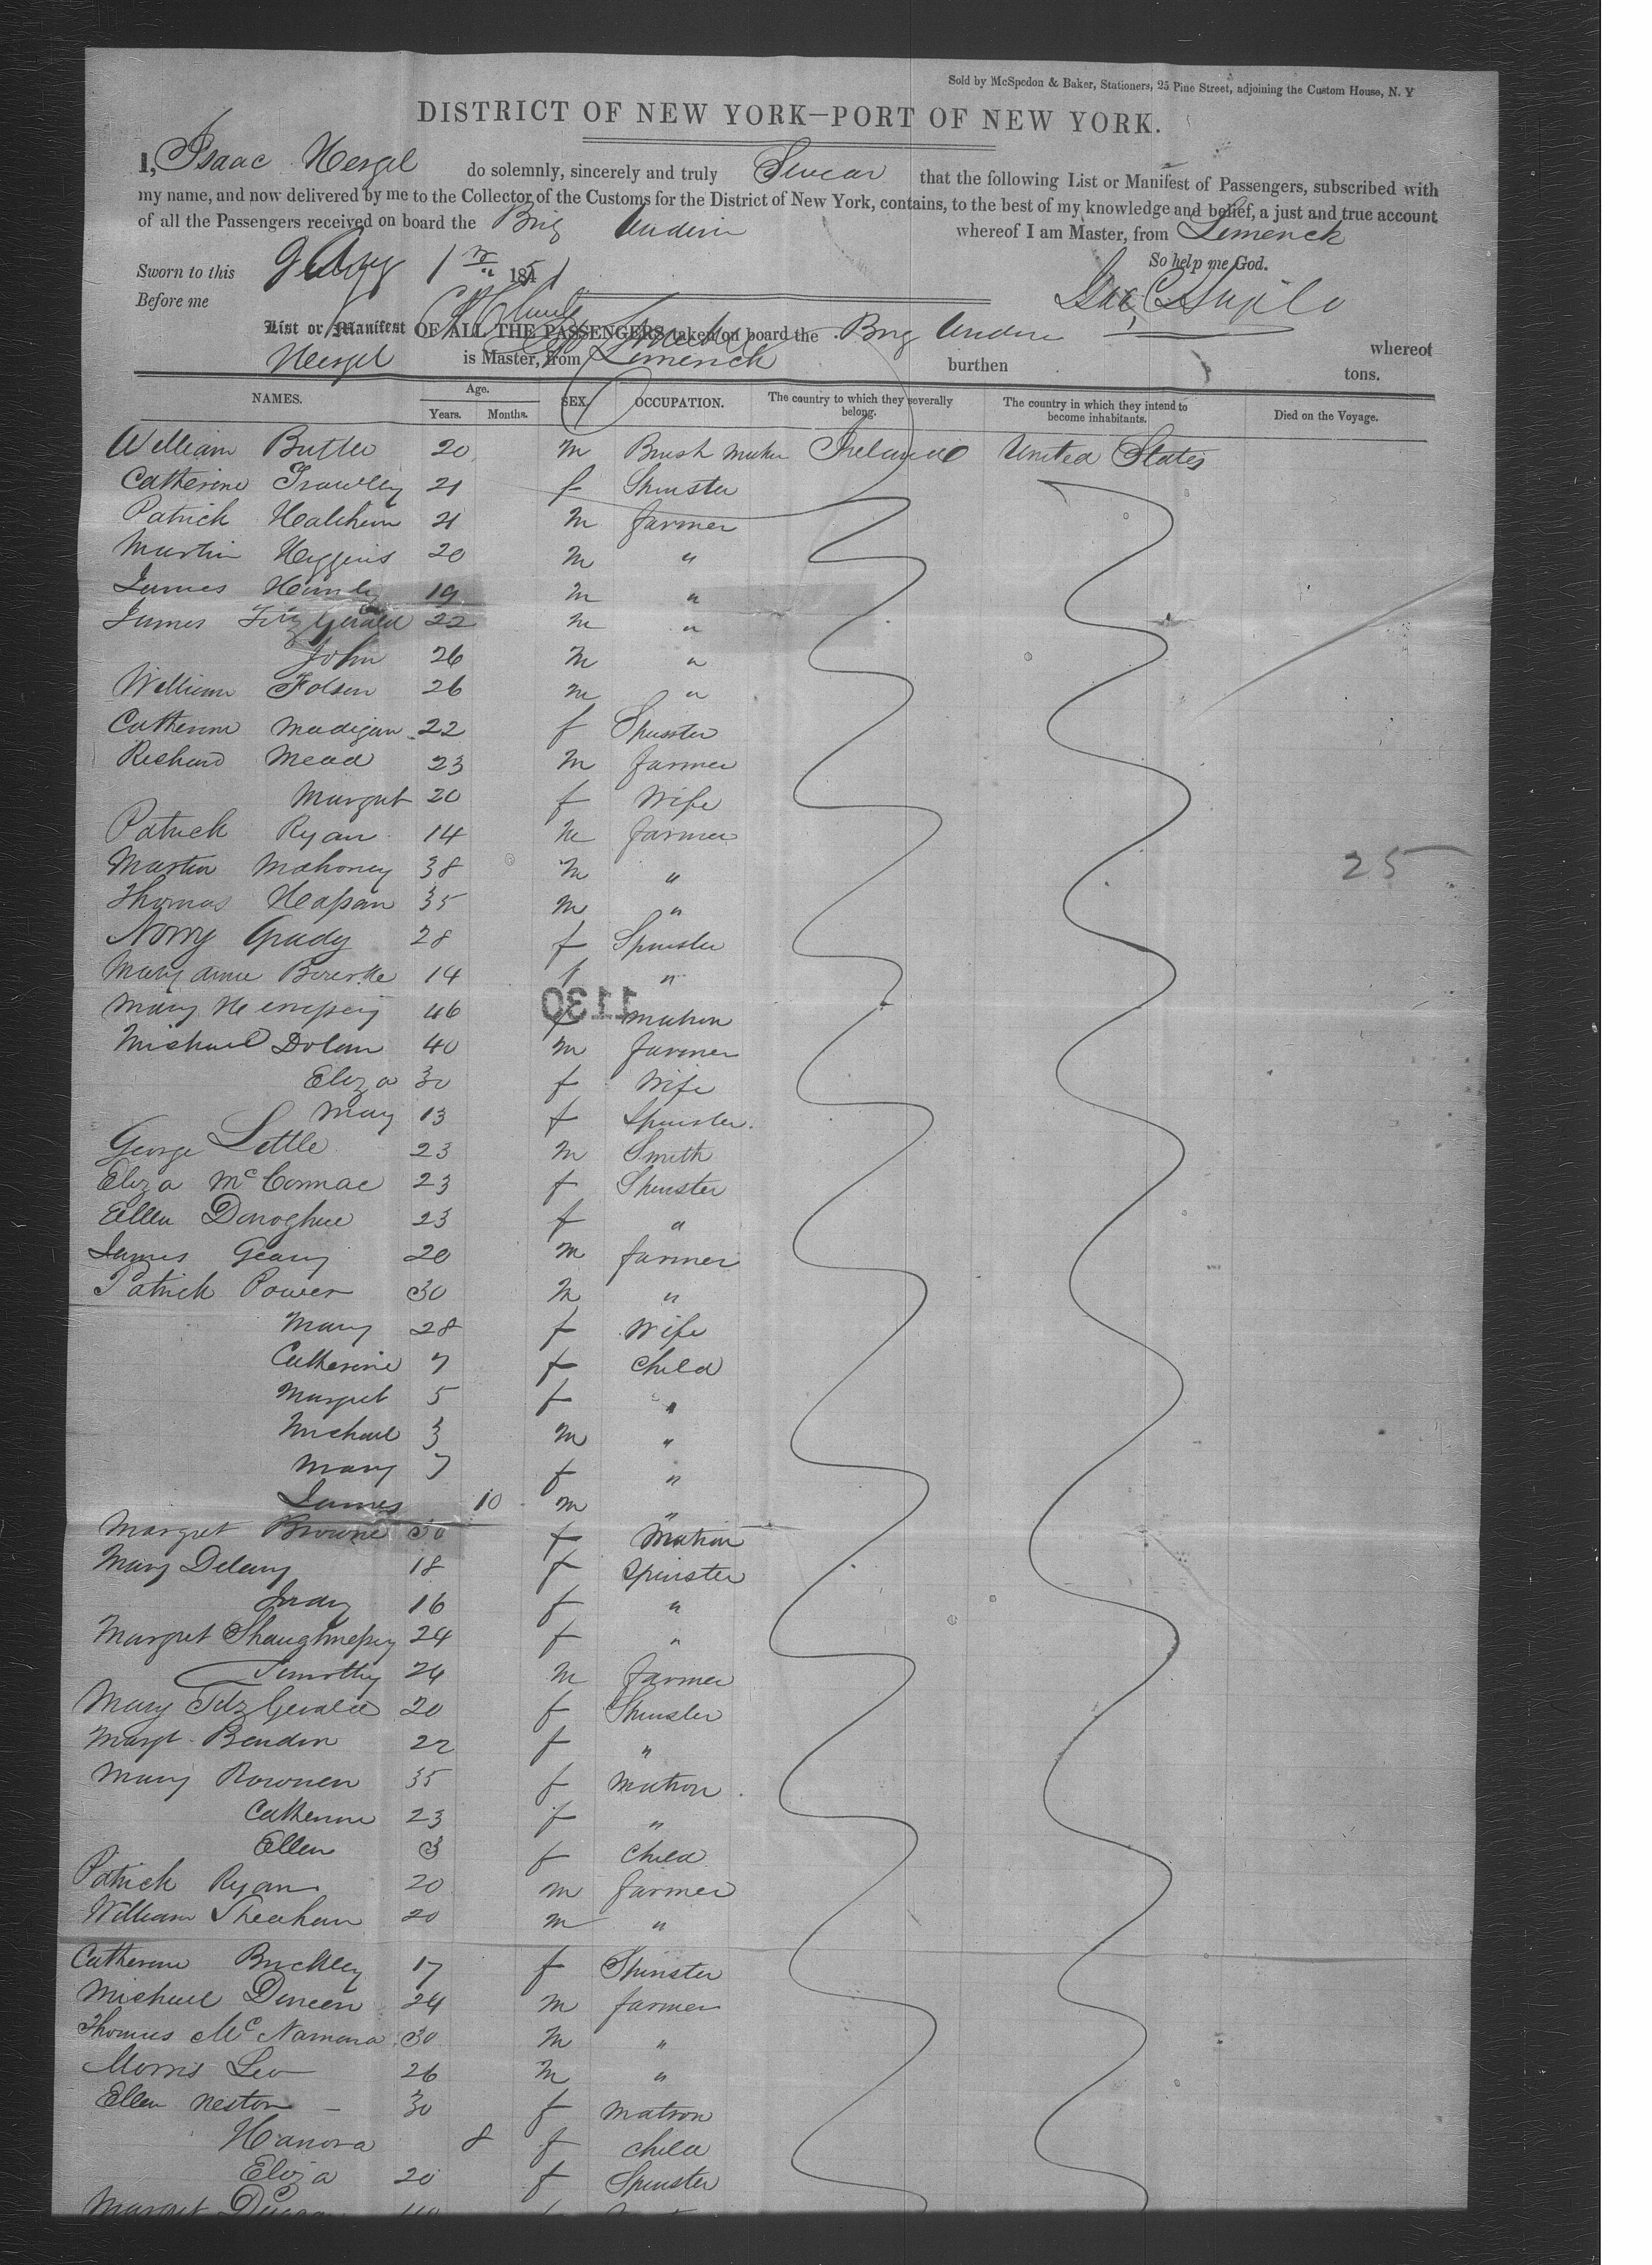 Sold by McSpedon & Baker, Stationers, 25 Pine Street, adjoining the Custom House, N. Y
DISTRICT OF NEW YORK—PORT OF NEW YORK.
I, Isaac do solemnly, sincerely and truly Swear that the following List or Manifest of Passengers, subscribed with
my name, and now delivered by me to the Collector of the Customs for the District of New York, contains, to the best of my knowledge and belief, a just and true account
of all the Passengers received on board the Brig whereof I am Master, from Limerick
Sworn to this 1 1851 So help me God.
Before me
List or Manifest OF ALL THE PASSENGERS taken on board the Brig whereof
is Master, from Limerick burthen tons.
NAMES. Age. Years. Months. SEX. OCCUPATION. The country to which they severally belong. The country in which they intend to become inhabitants. Died on the Voyage.
William Butler 20 m Brush maker Ireland United States
Catherine 21 f Spinster
Patrick 21 m farmer
Martin Higgins 20 m "
James 19 m "
James FitzGerald 22 m "
John 26 m "
William 26 m "
Catherine Madigan 22 f Spinster
Richard Mead 23 m farmer
Margret 20 f Wife
Patrick Ryan 14 m farmer
Martin Mahoney 38 m "
25
Thomas 35 m "
Norry Grady 28 f Spinster
Mary anne Bourke 14 f "
1130
Mary 46 f matron
Michael Dolan 40 m farmer
Eliza 30 f Wife
Mary 13 f Spinster.
George Little 23 m Smith
Eliza McCormac 23 f Spinster
Ellen Donoghue 23 f "
James Geary 20 m farmer
Patrick Power 30 m "
Mary 28 f Wife
Catherine 7 f child
Margret 5 f "
Michael 3 m "
Mary 7 f "
James 10 m "
Margret Browne 30 f Matron
Mary Delany 18 f Spinster
Judy 16 f "
Margret Shaughnessy 24 f "
Timothy 24 m farmer
Mary FitzGerald 20 f Spinster
Margt 22 f "
Mary 35 f Matron
Catherine 23 f "
Ellen 3 f Child
Patrick Ryan 20 m farmer
William Sheahan 20 m "
Catherine Buckley 17 f Spinster
Michael Dineen 24 m farmer
Thomas McNamara 30 m "
Morris 26 m "
Ellen 30 f matron
Hanora 8 f child
Eliza 20 f Spinster
Margret